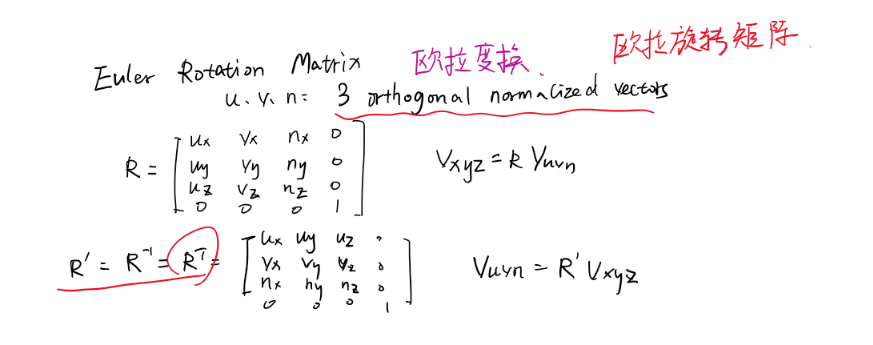 Euler Rotation Matrix 欧拉变换. 欧拉旋转矩阵.
u. v. n: 3 orthogonal normalized vectors
R = [ ux vx nx 0
uy vy ny 0
uz vz nz 0
0 0 0 1 ]
Vxyz = R Vuvn
R' = R⁻¹ = Rᵀ = [ ux uy uz 0
vx vy vz 0
nx ny nz 0
0 0 0 1 ]
Vuvn = R' Vxyz